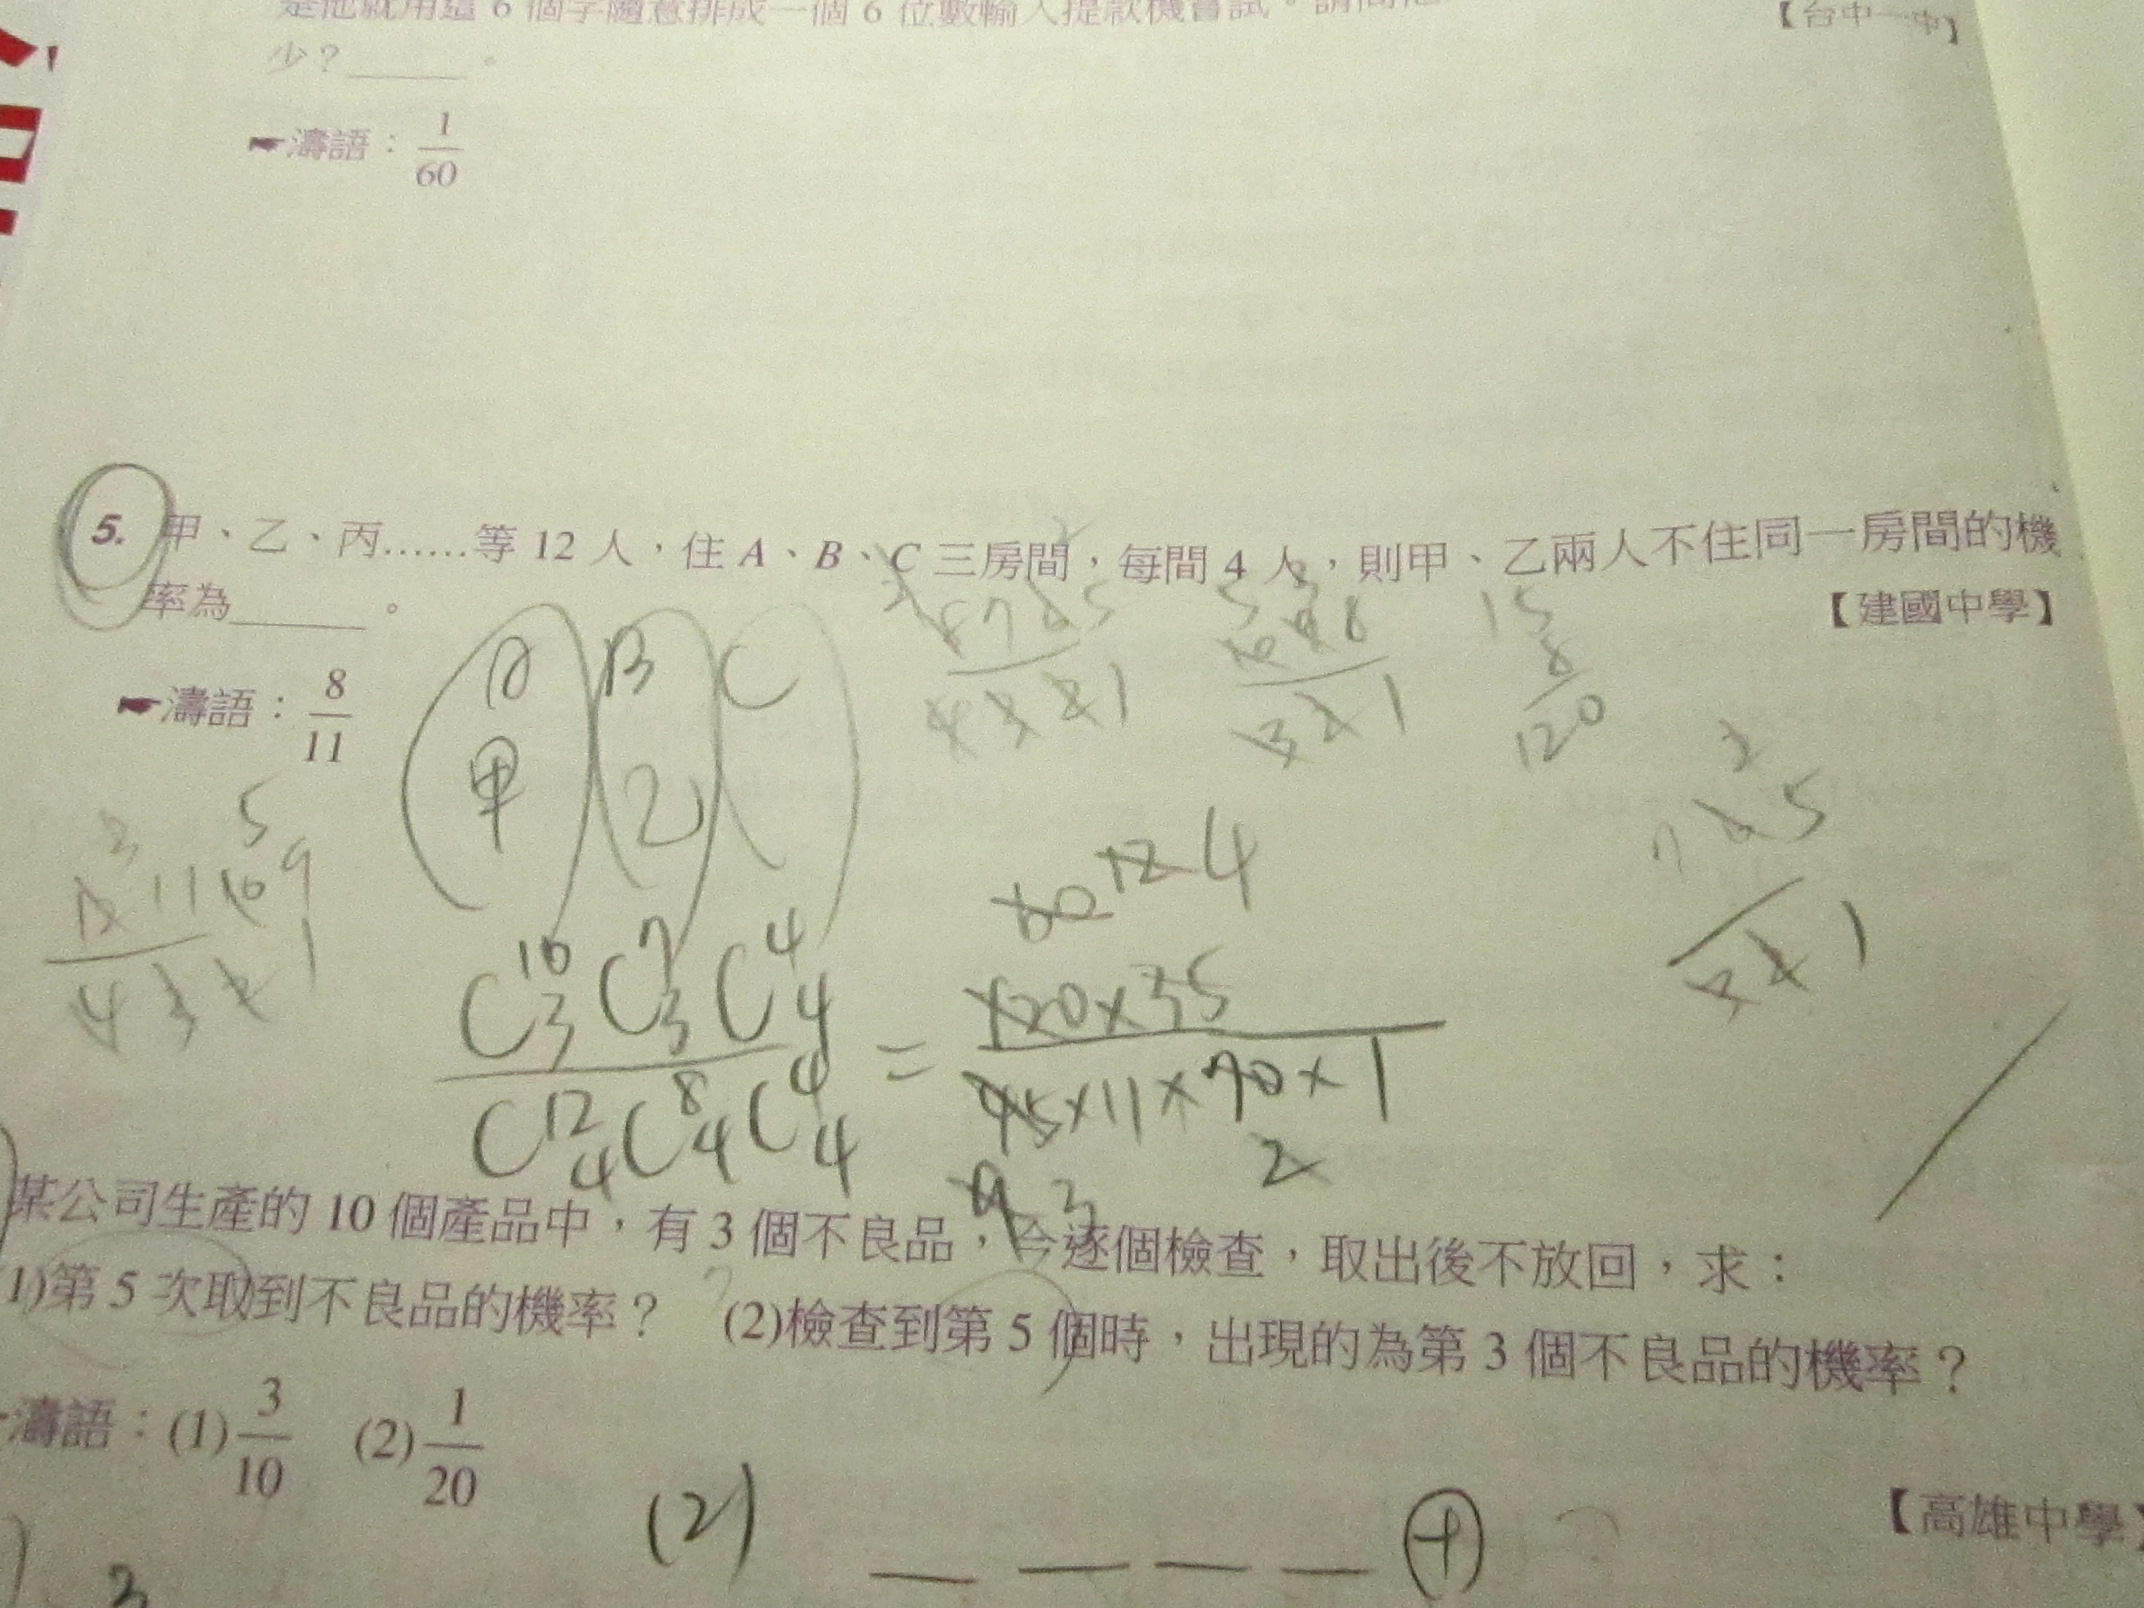 是他就用這 6 個字隨意排成一個 6 位數輸入提款機嘗試。請問他
少？______。
【台中一中】
☛濤語：1/60
5. 甲、乙、丙……等 12 人，住 A、B、C 三房間，每間 4 人，則甲、乙兩人不住同一房間的機
率為______。
【建國中學】
☛濤語：8/11
A B C
甲 乙
15
8
120
60 12 4
C^10_3 C^7_3 C^4_4 / C^12_4 C^8_4 C^4_4 = 120×35 / 45×11×70×1
9 3 2
某公司生產的 10 個產品中，有 3 個不良品，今逐個檢查，取出後不放回，求：
(1)第 5 次取到不良品的機率？ (2)檢查到第 5 個時，出現的為第 3 個不良品的機率？
濤語：(1) 3/10 (2) 1/20
【高雄中學】
(2)
3